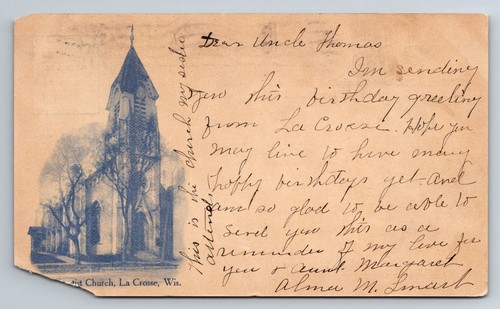 Dear Uncle Thomas
I'm sending
you this birthday greeting
from La Crosse. Hope you
may live to have many
happy birthdays yet - and
am so glad to be able to
send you this as a
reminder of my love for
you & Aunt Margaret
Alma M.
This is the church my sister
attend
ist Church, La Crosse, Wis.